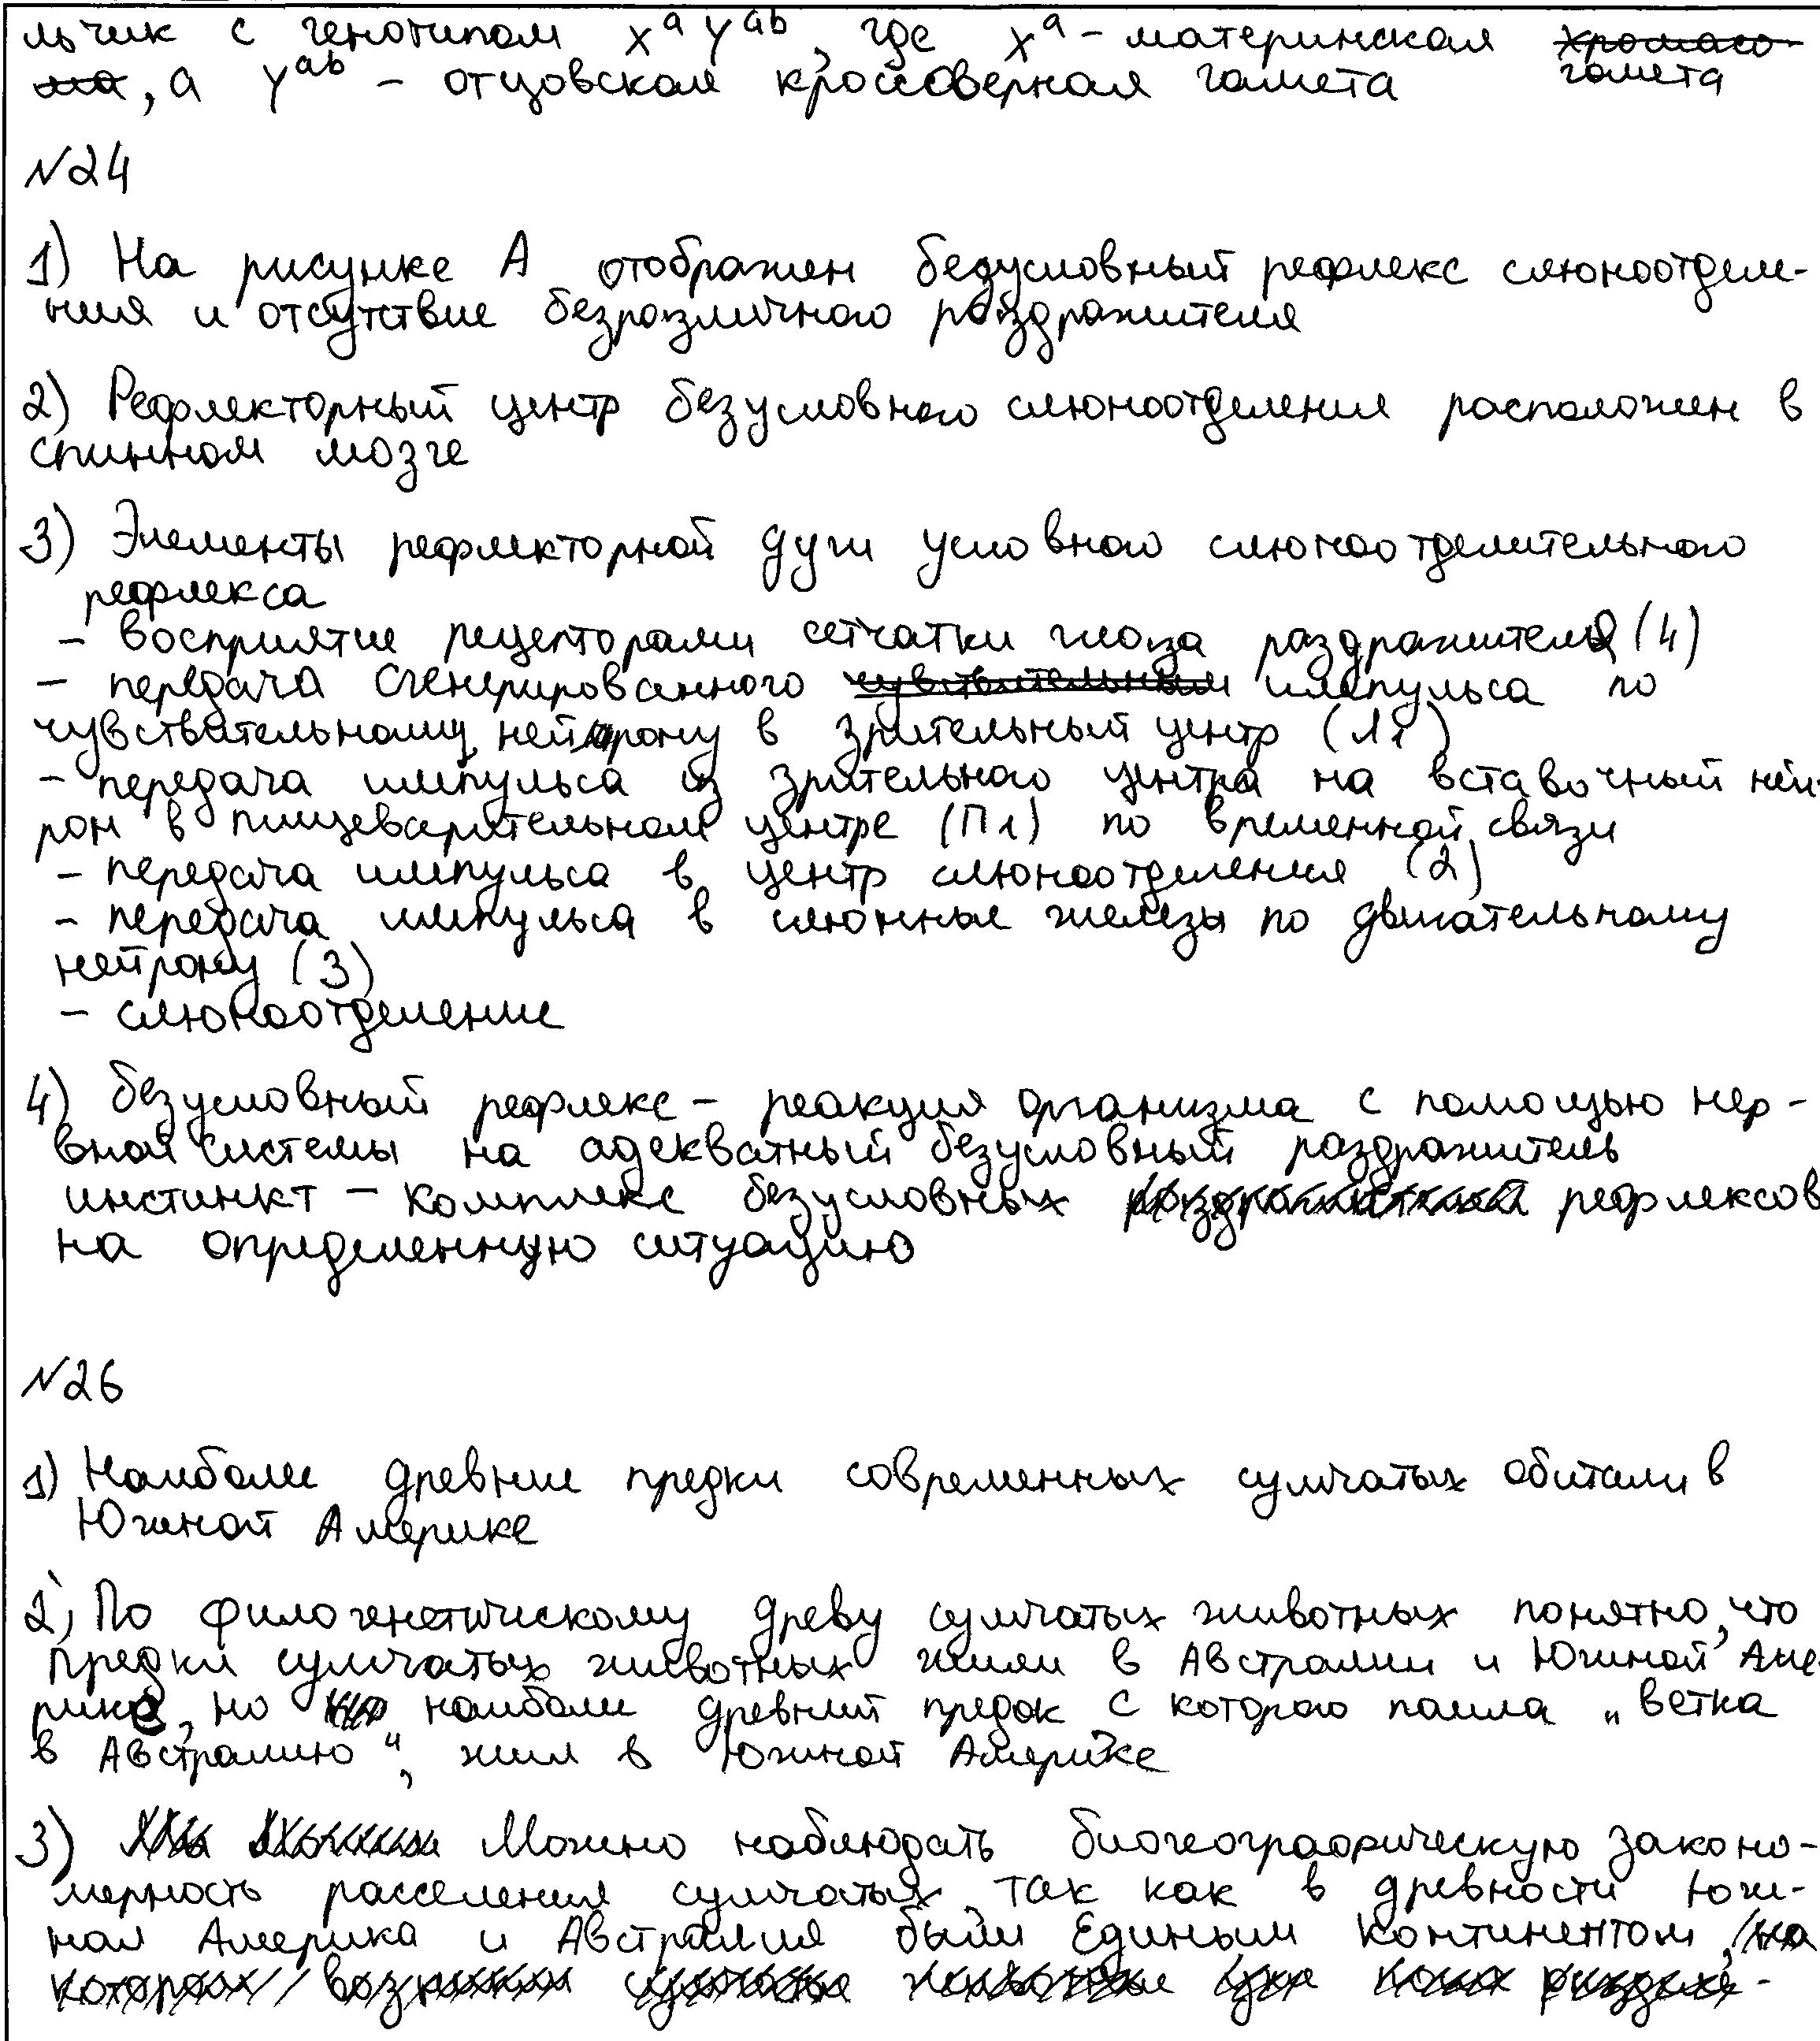 льчик с генотипом Xᵃ Yᵃᵇ, где Xᵃ - материнская хромосо-
ма, а Yᵃᵇ - отцовская кроссоверная гамета гамета
№24
1) На рисунке А отображен безусловный рефлекс слюноотделе-
ния и отсутствие безразличного раздражителя
2) Рефлекторный центр безусловного слюноотделения расположен в
спинном мозге
3) Элементы рефлекторной дуги условного слюноотделительного
рефлекса
- восприятие рецепторами сетчатки глаза раздражителя (4)
- передача сгенерированного чувствительным импульса по
чувствительному нейрону в зрительный центр (Л1)
- передача импульса из зрительного центра на вставочный ней-
рон в пищеварительном центре (П1) по временной связи
- передача импульса в центр слюноотделения (2)
- передача импульса в слюнные железы по двигательному
нейрону (3)
- слюноотделение
4) безусловный рефлекс - реакция организма с помощью нер-
вной системы на адекватный безусловный раздражитель
инстинкт - комплекс безусловных рефлексов
на определенную ситуацию
№26
1) Наиболее древние предки современных сумчатых обитали в
Южной Америке
2) По филогенетическому древу сумчатых животных понятно, что
предки сумчатых животных жили в Австралии и Южной Аме-
рике, но наиболее древний предок с которого пошла „ветка
в Австралию“, жил в Южной Америке
3) Можно наблюдать биогеографическую законо-
мерность расселения сумчатых, так как в древности Юж-
ная Америка и Австралия были единым континентом, на
котором возникли сумчатые животные